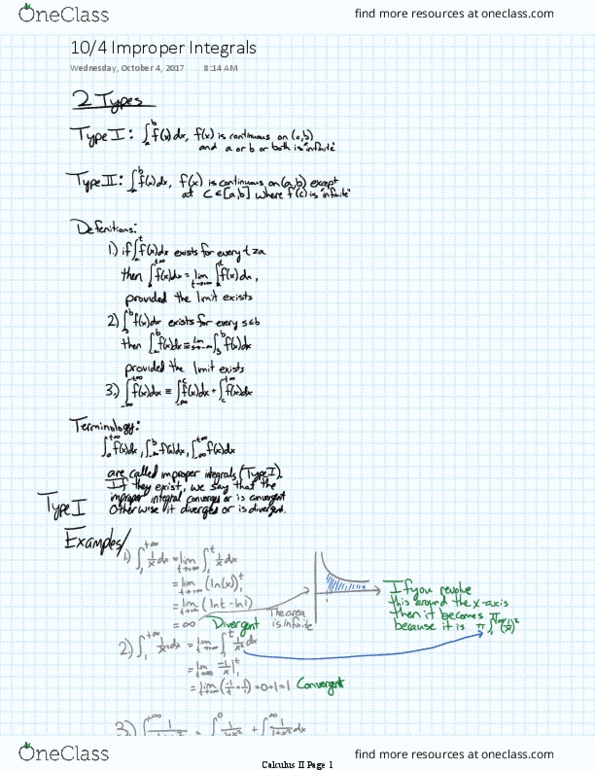 OneClass
find more resources at oneclass.com
10/4 Improper Integrals
Wednesday, October 4, 2017 8:14 AM
2 Types
Type I: ∫_a^b f(x)dx, f(x) is continuous on (a,b)
and a or b or both is "infinite"
Type II: ∫_a^b f(x)dx, f(x) is continuous on (a,b) except
at c∈[a,b] where f(c) is "infinite"
Defenitions:
1) if ∫_a^t f(x)dx exists for every t≥a
then ∫_a^{+∞} f(x)dx = lim_{t→+∞} ∫_a^t f(x)dx,
provided the limit exists
2) ∫_s^b f(x)dx exists for every s≤b
then ∫_{-∞}^b f(x)dx = lim_{s→-∞} ∫_s^b f(x)dx
provided the limit exists
3) ∫_{-∞}^{+∞} f(x)dx = ∫_{-∞}^c f(x)dx + ∫_c^{+∞} f(x)dx
Terminology:
∫_a^{+∞} f(x)dx, ∫_{-∞}^b f(x)dx, ∫_{-∞}^{+∞} f(x)dx
are called improper integrals (Type I).
If they exist, we say that the
improper integral converges or is convergent
Otherwise it diverges or is divergent.
Type I
Examples/
1) ∫_1^{+∞} 1/x dx = lim_{t→+∞} ∫_1^t 1/x dx
= lim_{t→+∞} (ln(x))|_1^t
= lim_{t→+∞} (ln t - ln 1)
= ∞ Divergent
The area
is infinite
If you revolve
this around the x-axis
then it becomes π
because it is π ∫_1^{+∞} (1/x²)
2) ∫_1^{+∞} 1/x² dx = lim_{t→+∞} ∫_1^t 1/x² dx
= lim_{t→+∞} -1/x |_1^t
= lim_{t→+∞} (-1/t + 1) = 0+1 = 1 Convergent
3) ∫_{-∞}^{+∞}
OneClass
find more resources at oneclass.com
Calculus II Page 1